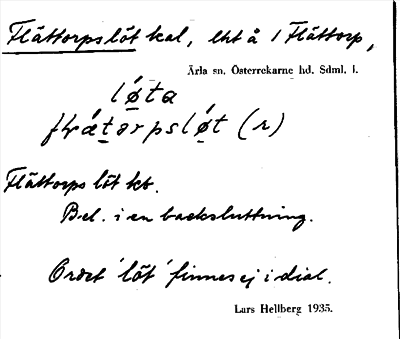 Flättorpslöt kal, lht å 1 Flättorp,
Ärla sn, Österrekarne hd, Sdml. l.
lǿta
flǽtǝrpslø̀t (r)
Flättorps löt kb.
Bel. i en backsluttning.
Ordet 'löt' finnes ej i dial.
Lars Hellberg 1935.